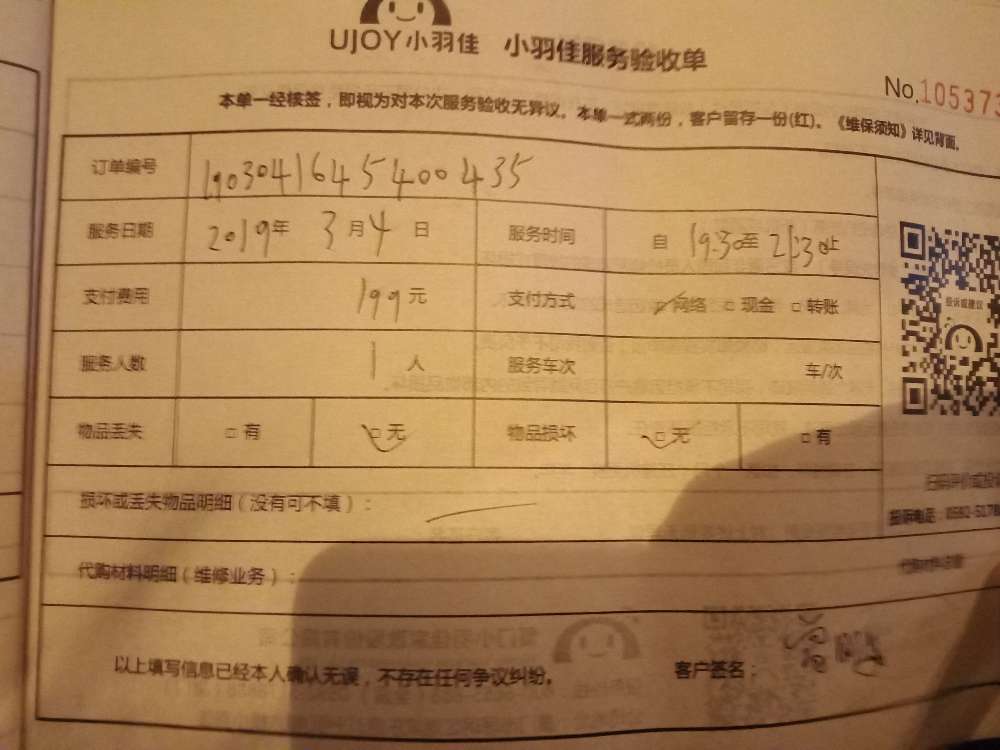 UJOY小羽佳 小羽佳服务验收单
No.105373
本单一经核签，即视为对本次服务验收无异议。本单一式两份，客户留存一份(红)。《维保须知》详见背面。
订单编号 1903041645400435
服务日期 2019年 3月4日 服务时间 自 19:30至 21:30止
支付费用 199元 支付方式 ☑网络 □现金 □转账
投诉或建议
服务人数 1人 服务车次 车/次
物品丢失 □有 ☑无 物品损坏 ☑无 □有
扫码评价或投
损坏或丢失物品明细（没有可不填）：
投诉电话：0592-5178
代购材料明细（维修业务）：
以上填写信息已经本人确认无误，不存在任何争议纠纷。 客户签名：